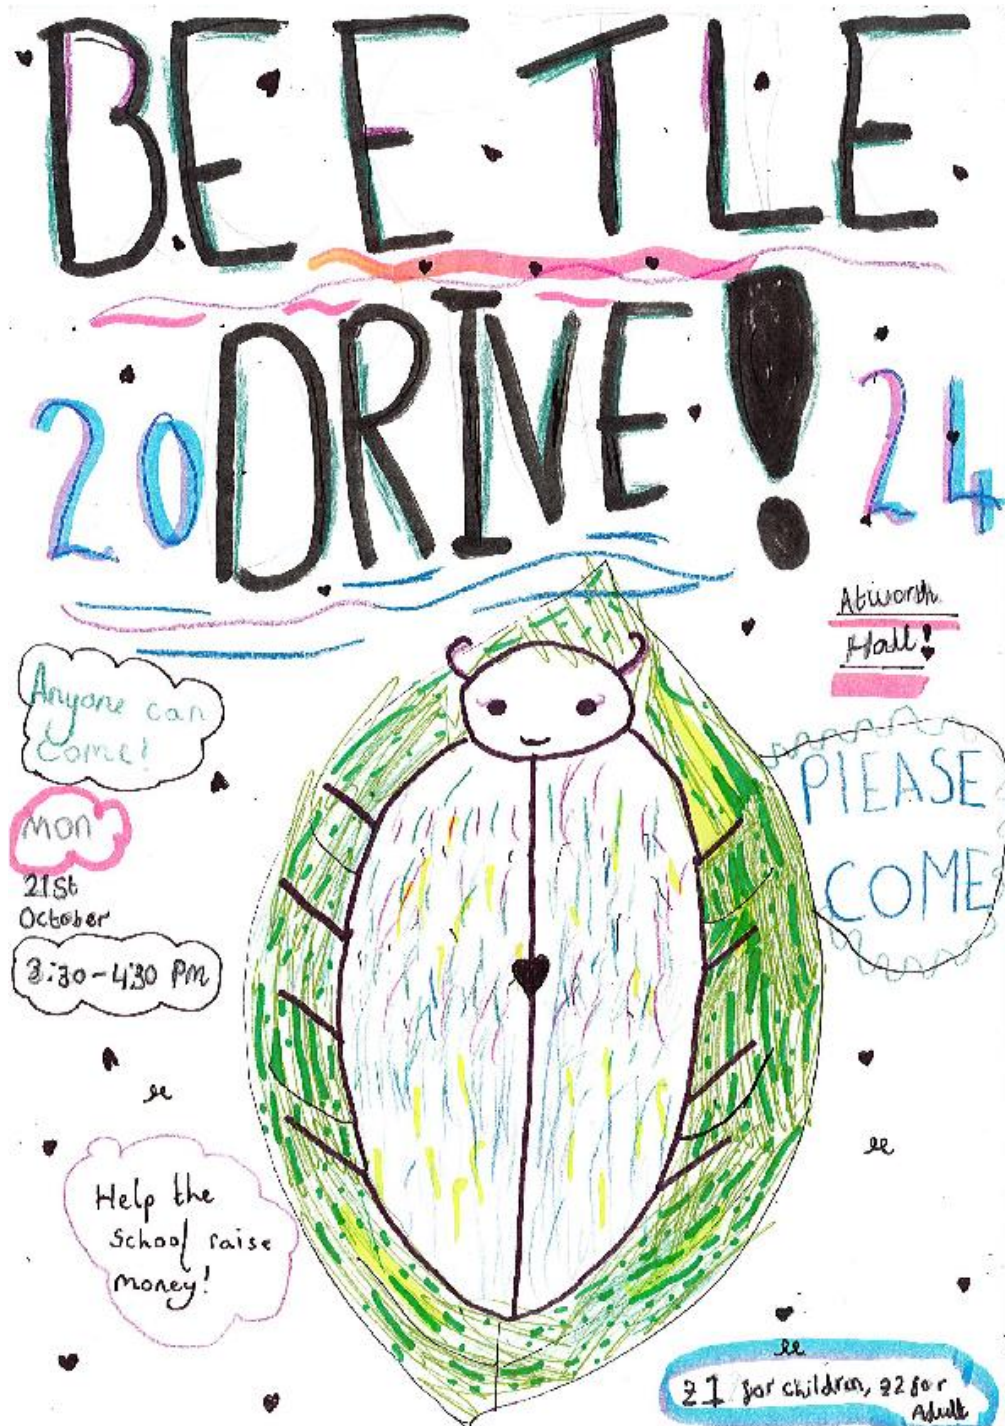 BEETLE
DRIVE!
2024
Atworth
Hall!
Anyone can
come!
PlEASE
COME
Mon
21St
October
3:30-4:30 PM
Help the
School raise
money!
£1 for children, £2 for
Adult